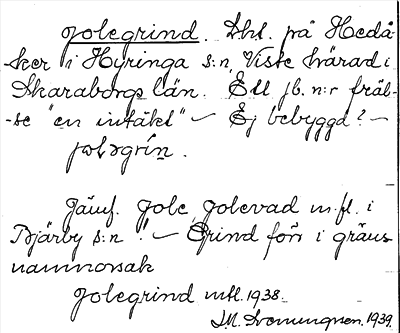 Jolegrind. Dkl. på Hedå-
ker i Hyringa s:n, Viste härad i
Skaraborgs län. Ett jb. n:r fräl-
-se "en intäkt" – Ej bebyggd? –
jѡlǝgrín.
Jämf. Jole, Jolevad m.fl. i
Bjärby s:n! – Grind förr i gräns
namnorsak
Jolegrind mtl. 1938.
1939.